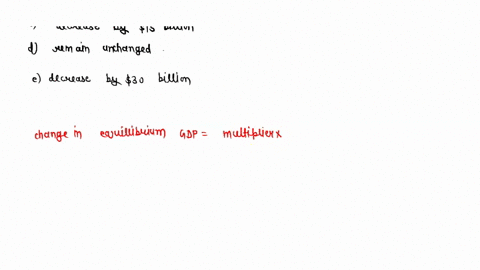 decrease by $15 billion
d) remain unchanged .
e) decrease by $30 billion
change in equillibrium GDP = multiplier x